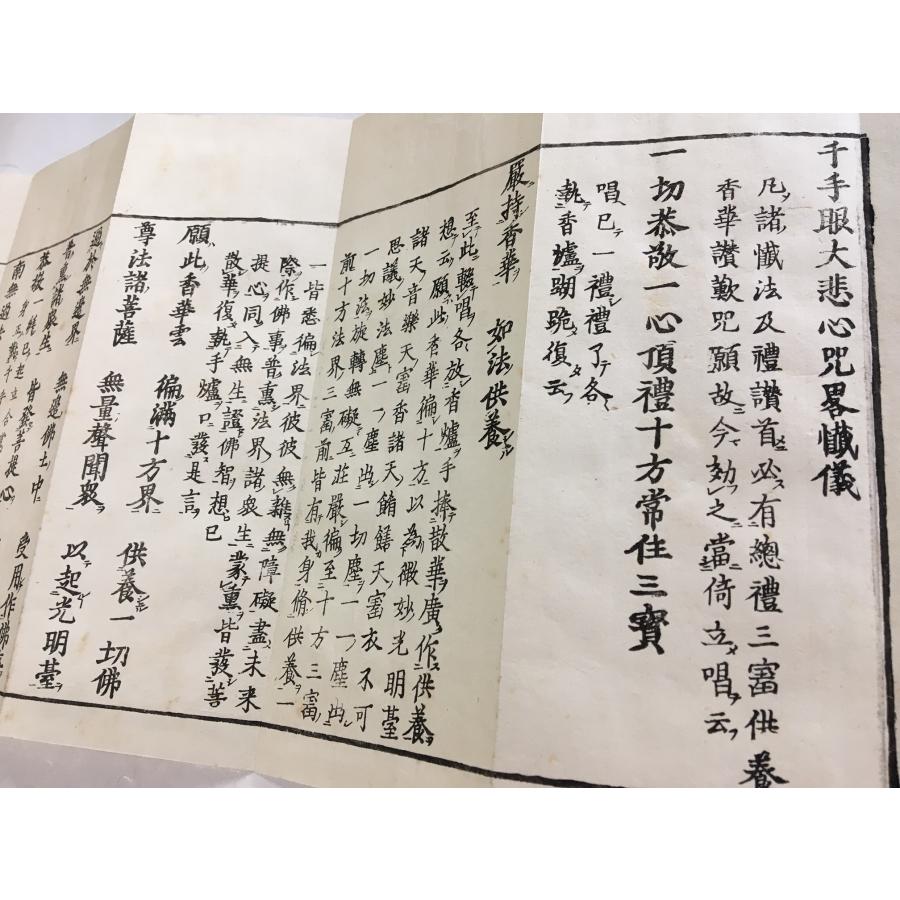 千手眼大悲心咒畧懺儀
凡諸懺法及禮讃首必有總禮三寳供養
香華讃歎咒願故今効之當倚立唱云
一切恭敬一心頂禮十方常住三寳
唱已一禮禮了各
執香爐𧿨跪復云
嚴持香華 如法供養
至此輟唱各放香爐手捧散華廣作供養
想云願此香華徧十方以為微妙光明臺
諸天音樂天寳香諸天餚饍天寳衣不可
思議妙法塵一一塵出一切塵一一塵出
一切法旋轉無礙互莊嚴徧至十方三寳
前十方法界三寳前皆有我身修供養一
一皆悉徧法界彼彼無雜無障礙盡未来
際作佛事普熏法界諸衆生蒙熏皆發菩
提心同入無生證佛智想已
散華復執手爐口發是言
願此香華雲 徧滿十方界 供養一切佛
尊法諸菩薩 無量聲聞衆 以起光明臺
過於無邊界 無邊佛土中 受用作佛
普熏諸衆生 皆發菩提心
恭敬一拜已起立
南無過去